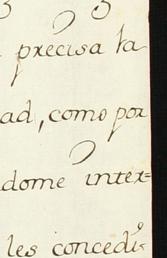 precisa la
ad, como por
dome inter=
les concedi=